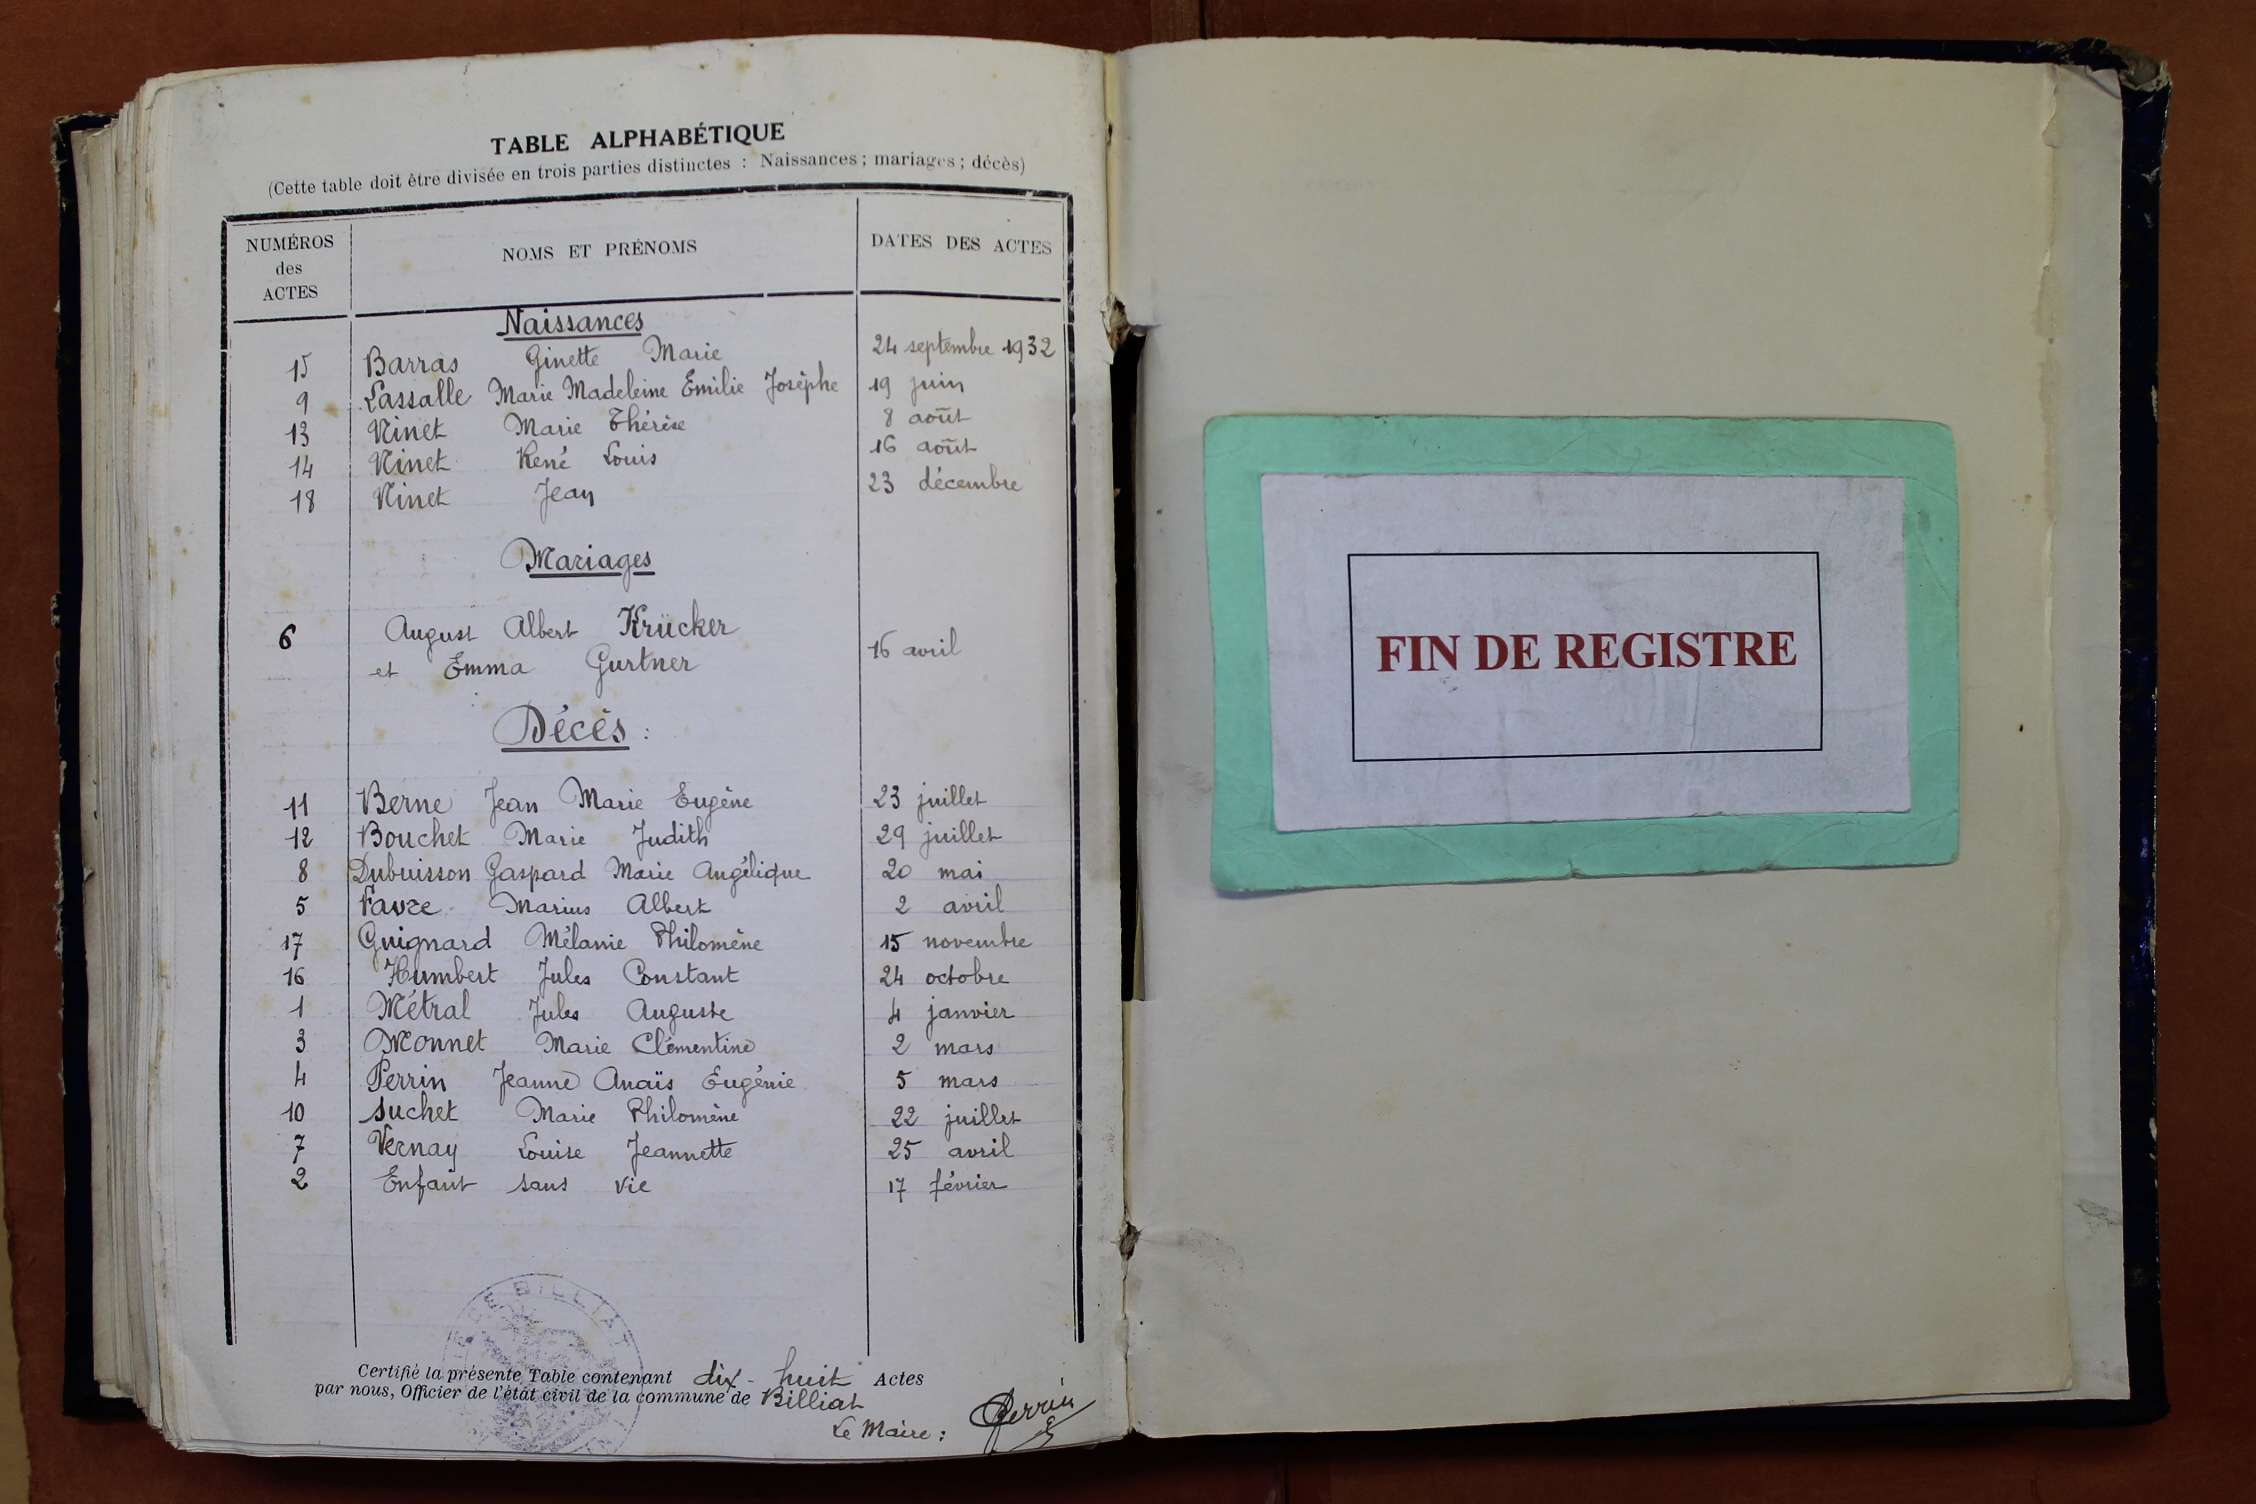 TABLE ALPHABÉTIQUE
(Cette table doit être divisée en trois parties distinctes : Naissances ; mariages ; décès)
NUMÉROS des ACTES NOMS ET PRÉNOMS DATES DES ACTES
Naissances
15 Barras Ginette Marie 24 septembre 1932
9 Lassalle Marie Madeleine Emilie Josèphe 19 juin
13 Ninet Marie Thérèse 8 août
14 Ninet René Louis 16 août
18 Ninet Jean 23 décembre
Mariages
6 August Albert Krücker
et Emma Gurtner 16 avril
Décès :
11 Berne Jean Marie Eugène 23 juillet
12 Bouchet Marie Judith 29 juillet
8 Dubuisson Gaspard Marie Angélique 20 mai
5 Favre Marius Albert 2 avril
17 Guignard Mélanie Philomène 15 novembre
16 Humbert Jules Constant 24 octobre
1 Métral Jules Auguste 4 janvier
3 Monnet Marie Clémentine 2 mars
4 Perrin Jeanne Anaïs Eugénie 5 mars
10 Suchet Marie Philomène 22 juillet
7 Vernay Louise Jeannette 25 avril
2 Enfant sans vie 17 février
DE BILLIAT
Certifié la présente Table contenant dix-huit Actes
par nous, Officier de l'état civil de la commune de Billiat
Le Maire :
Perrin
FIN DE REGISTRE